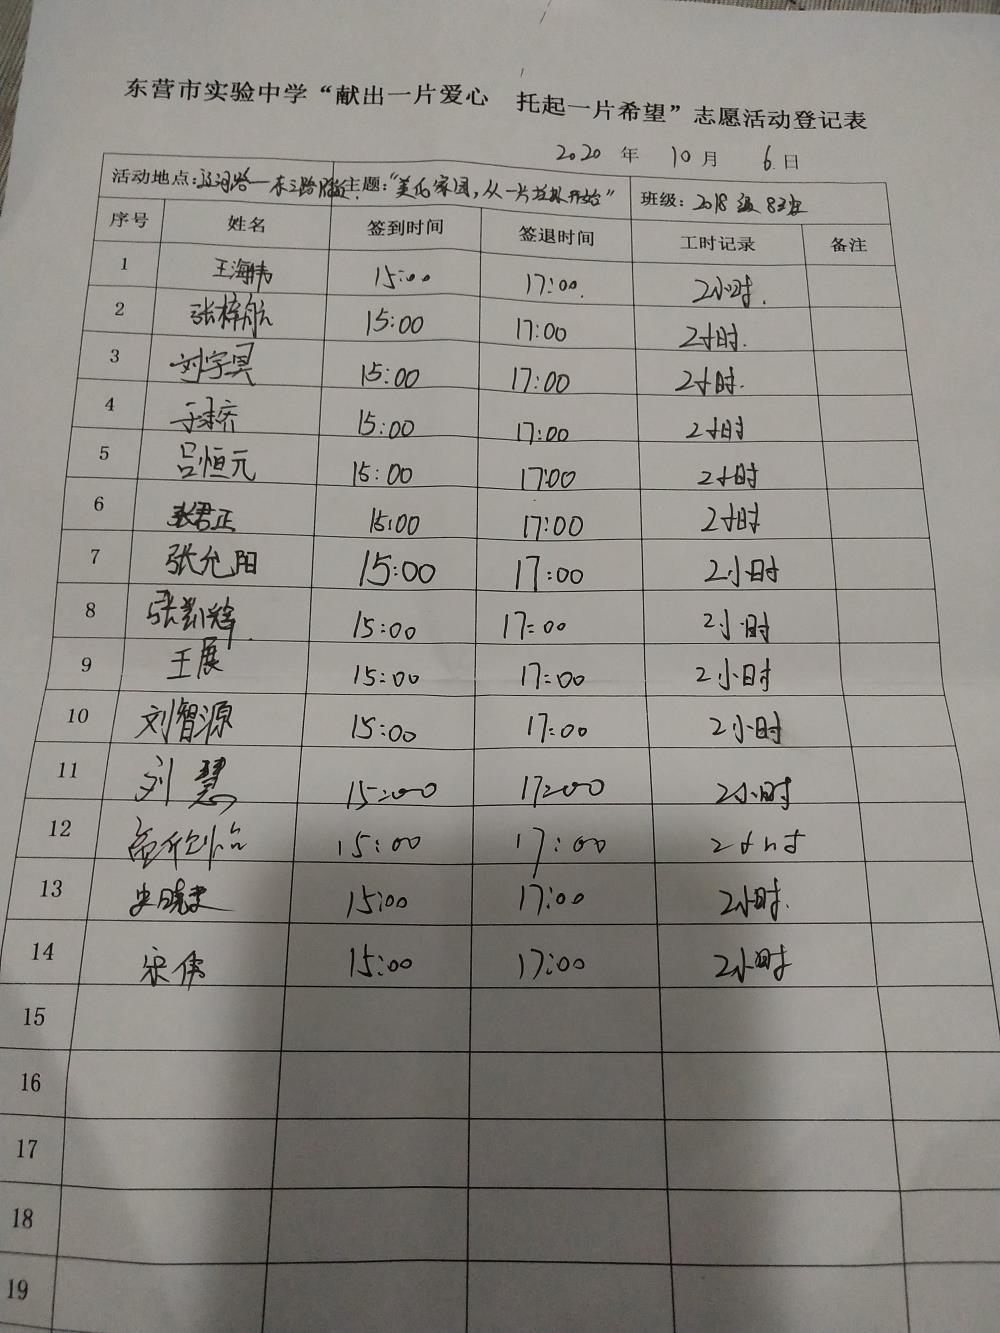 东营市实验中学“献出一片爱心 托起一片希望”志愿活动登记表
2020 年 10 月 6 日
活动地点:辽河路—东三路附近 主题:“美化家园,从一片垃圾开始” 班级:2018级8班
序号 姓名 签到时间 签退时间 工时记录 备注
1 王海伟 15:00 17:00. 2小时.
2 张梓航 15:00 17:00 2小时.
3 刘宇昊 15:00 17:00 2小时.
4 15:00 17:00 2小时
5 吕恒元 15:00 17:00 2小时
6 张君正 15:00 17:00 2小时
7 张允阳 15:00 17:00 2小时
8 张凯锋 15:00 17:00 2小时
9 王展 15:00 17:00 2小时
10 刘智源 15:00 17:00 2小时
11 刘慧 15:00 17:00 2小时
12 15:00 17:00 2小时
13 15:00 17:00 2小时.
14 宋伟 15:00 17:00 2小时
15
16
17
18
19